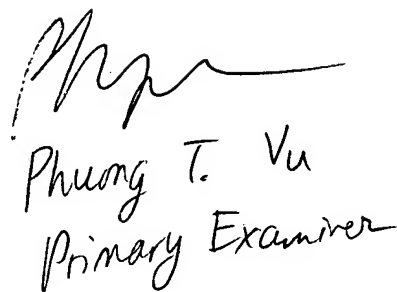 Phuong T. Vu
Primary Examiner